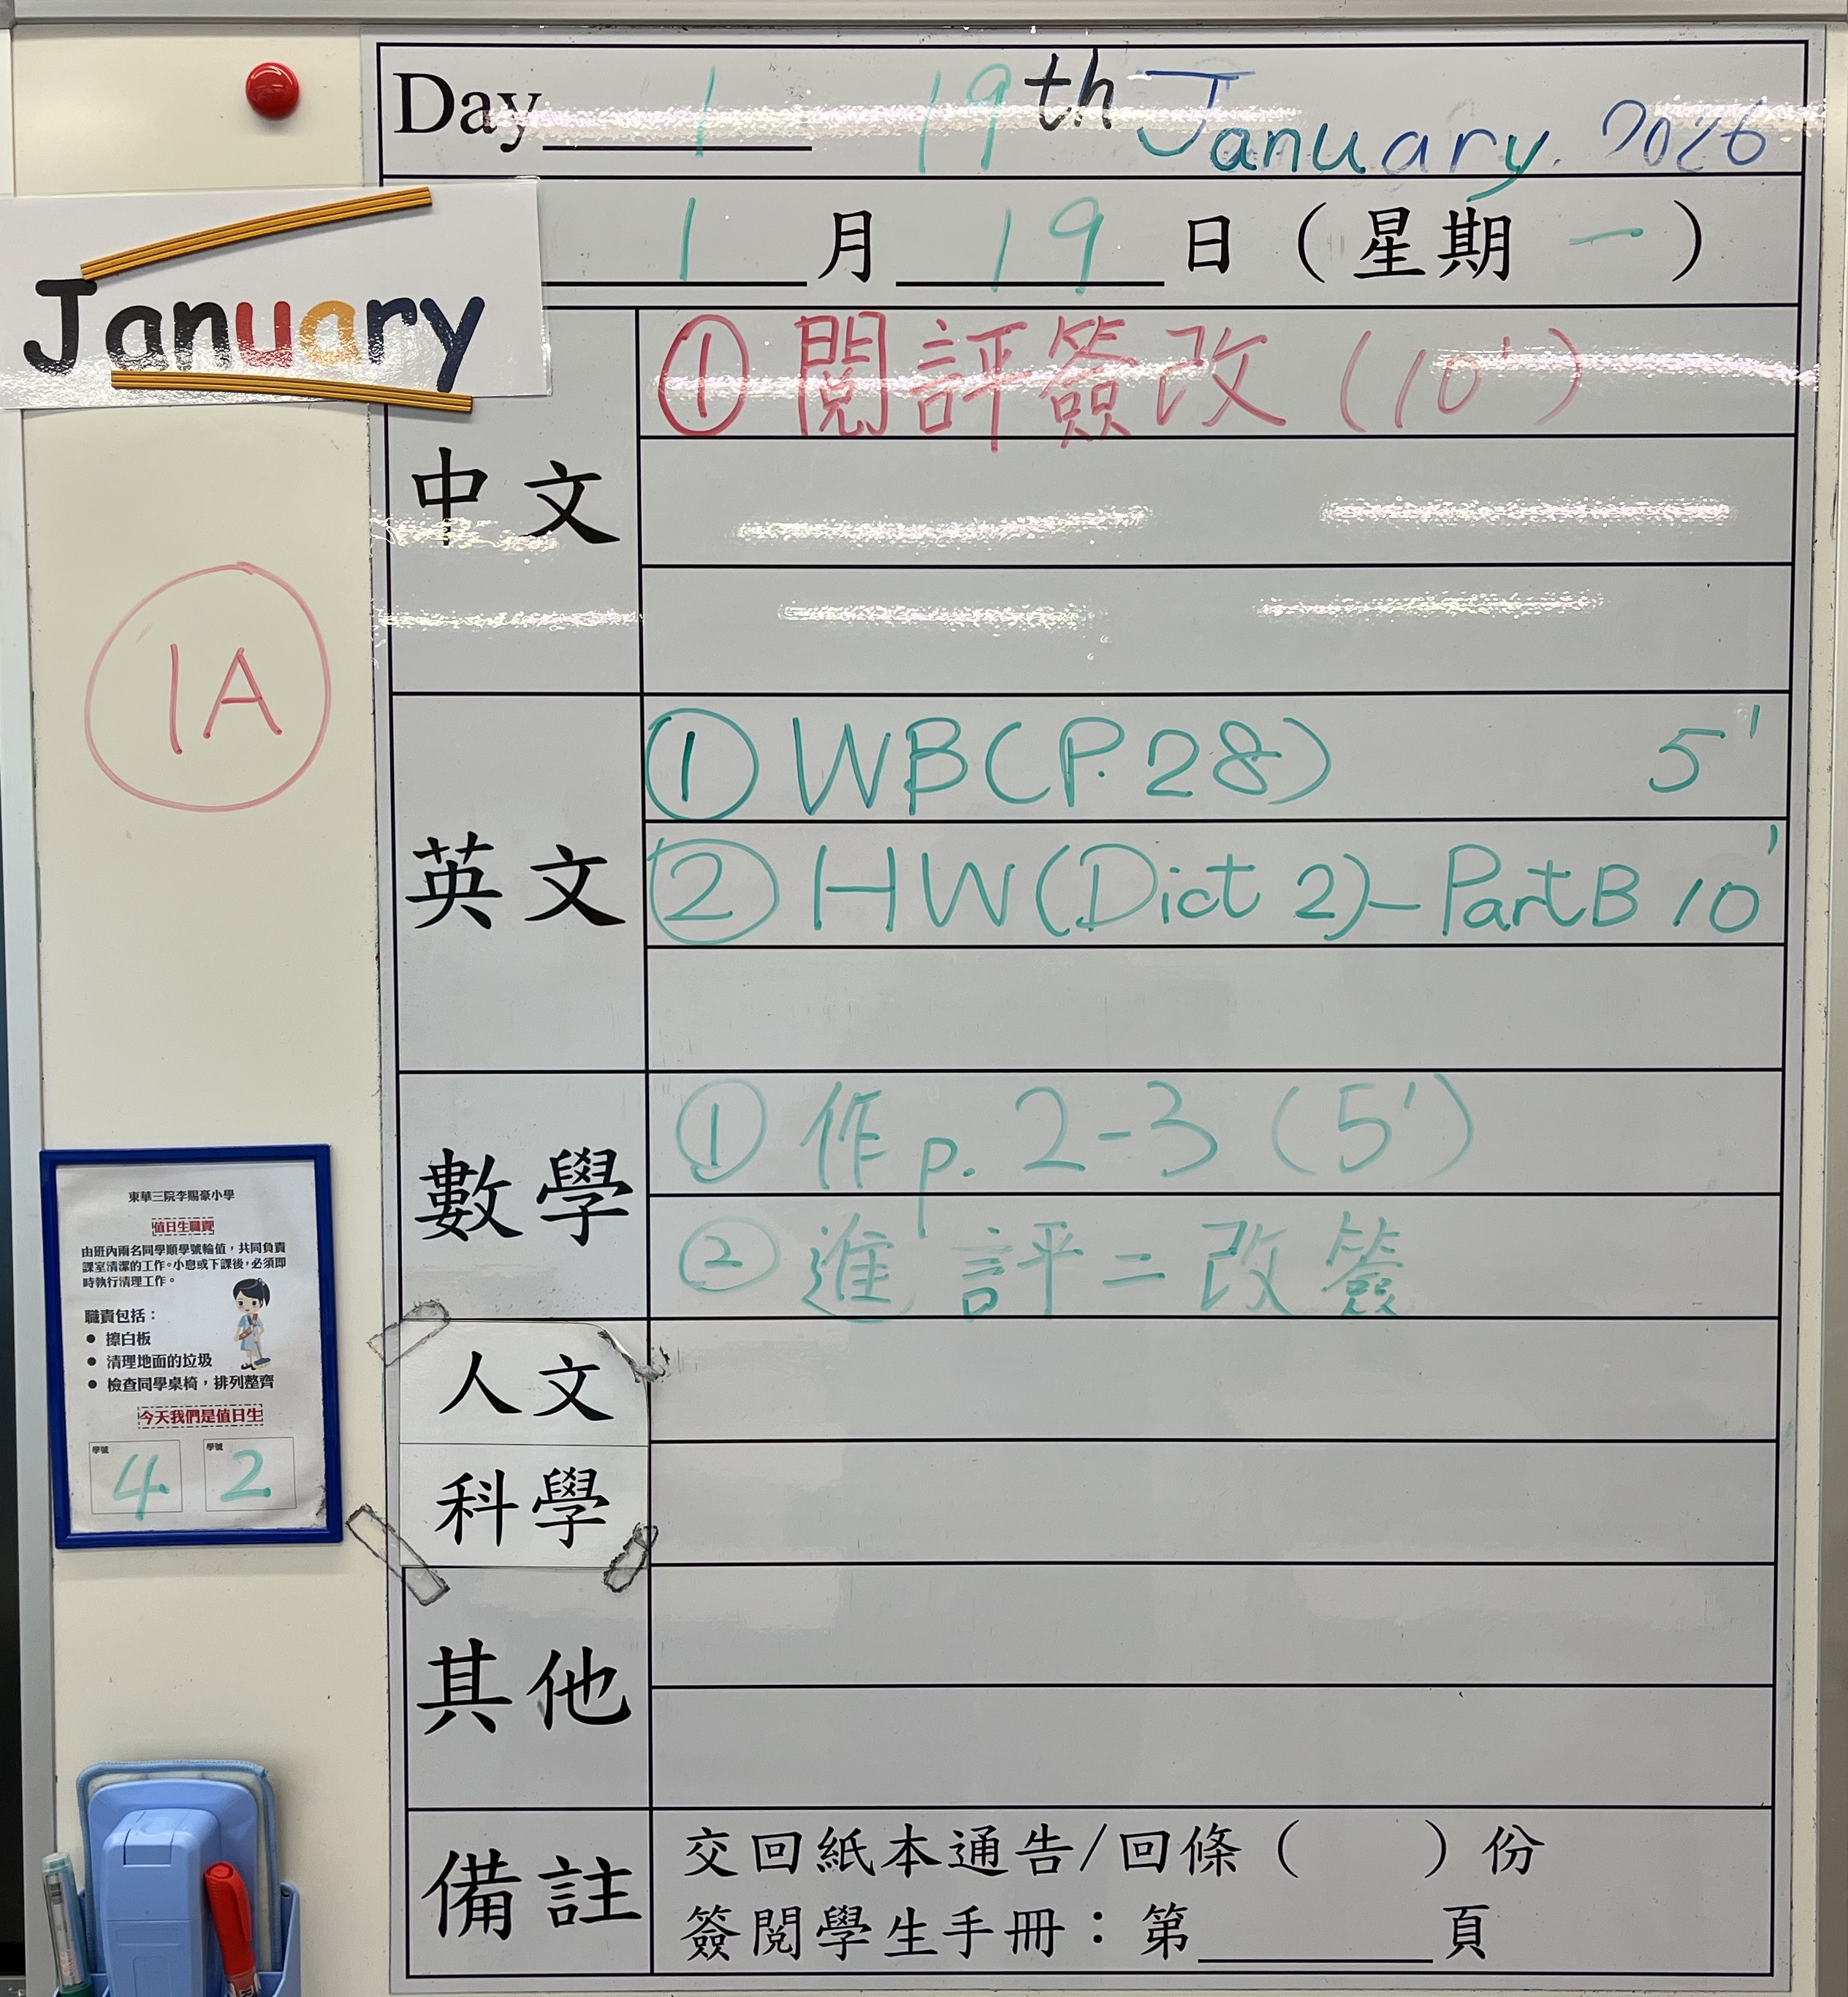 Day 1 19th January 2026
1 月 19 日 (星期 一)
January
中文
① 閱評簽改 (10')
1A
英文
① WB(P.28) 5'
② HW(Dict 2)-Part B 10'
數學
① 作 p. 2-3 (5')
② 進評二改簽
人文
科學
其他
備註
交回紙本通告/回條 ( ) 份
簽閱學生手冊：第____頁
東華三院李賜豪小學
值日生職責
由班內兩名同學順學號輪值，共同負責
課室清潔的工作。小息或下課後，必須即
時執行清理工作。
職責包括：
● 擦白板
● 清理地面的垃圾
● 檢查同學桌椅，排列整齊
今天我們是值日生
學號 4 學號 2